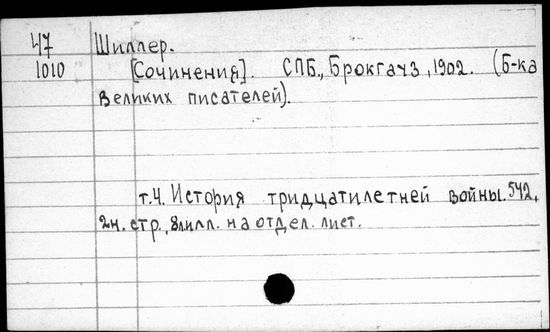 47 Шиллер.
1010 [Сочинения]. СПБ., Брокгауз, 1902. (Б-ка
великих писателей).
т.4. История тридцатилетней войны. 542,
2н. стр., 8илл. на отдел. лист.